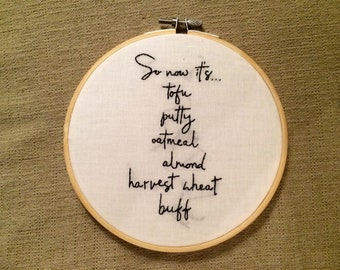 So now it's...
tofu
putty
oatmeal
almond
harvest wheat
buff